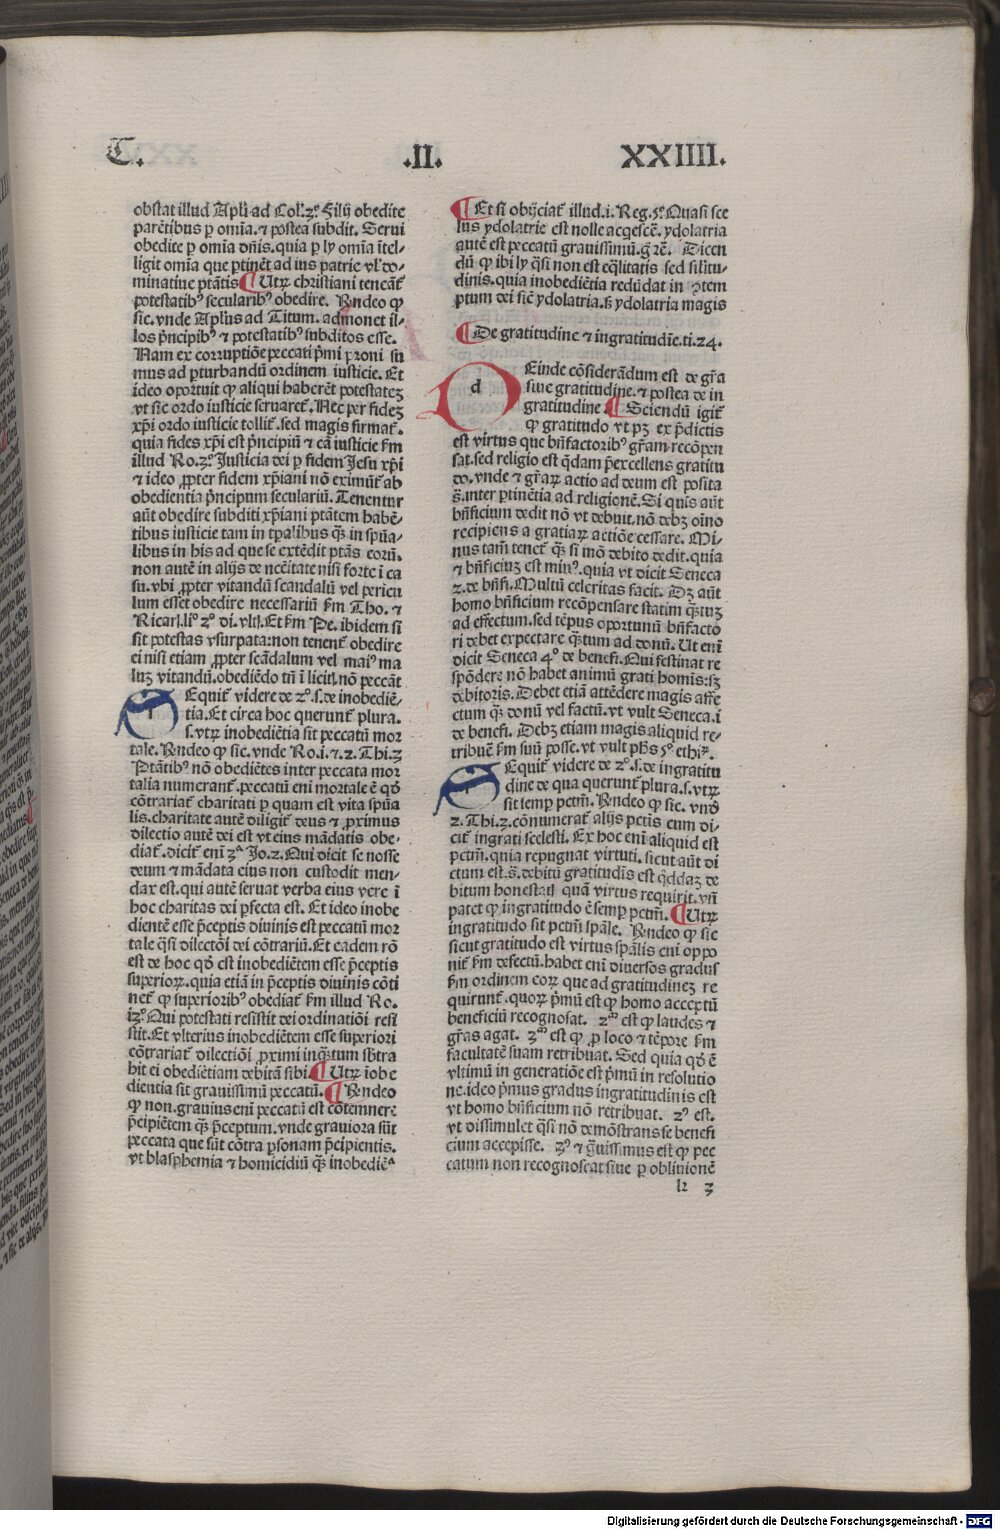 T. .II. XXIIII.
obstat illud Apl̃i ad Col'.3º. Filij obedite
parẽtibus ꝑ om̃ia. ⁊ postea subdit. Serui
obedite ꝑ om̃ia dñis. quia ꝑ ly om̃ia ĩtel-
ligit om̃ia que ꝑtinẽt ad ius patrie vl' do-
minatiue ptãtis ¶ Utꝝ christiani teneãt̃
potestatibꝰ secularibꝰ obedire. Rñdeo ꝙ
sic. vnde Apl̃us ad Titum. admonet il-
los p̃ncipibꝰ ⁊ potestatibꝰ subditos esse.
Nam ex corruptiõe peccati p̃mi proni su
mus ad ꝑturbandũ ordinem iusticie. Et
ideo oportuit ꝙ aliqui haberẽt potestateꝫ
vt sic ordo iusticie seruaret̃. Nec per fideꝫ
xp̃i ordo iusticie tollit̃. sed magis firmat̃.
quia fides xp̃i est p̃ncipiũ ⁊ cã iusticie ẜm
illud Ro.3º. Justicia dei ꝑ fidem Jesu xp̃i
⁊ ideo ꝓpter fidem xp̃iani nõ eximũt̃ ab
obedientia p̃ncipum seculariũ. Tenentur
aũt obedire subditi xp̃iani ptãtem habẽ-
tibus iusticie tam in tpalibus q̃ꝫ in sp̃ua-
libus in his ad que se extẽdit ptãs eorũ.
non autẽ in alijs de nccẽitate nisi forte ĩ ca
su. vbi ꝓpter vitandũ scandalũ vel pericu
lum esset obedire necessariũ ẜm Tho. ⁊
Ricar. li.º 2º di. vlt. Et ẜm Pe. ibidem si
sit potestas vsurpata: non tenent̃ obedire
ei nisi etiam ꝓpter scãdalum vel maiꝰ ma
luꝫ vitandũ. obediẽdo tñ ĩ licit. nõ peccãt
SEquit̃ videre de 2º.s. de inobediẽ-
tia. Et circa hoc querunt̃ plura.
s. vtꝝ inobediẽtia sit peccatũ mor
tale. Rñdeo ꝙ sic. vnde Ro.i. ⁊.2. Thi.3
Ptãtibꝰ nõ obediẽtes inter peccata mor
talia numerant̃. peccatũ eni mortale ẽ qđ
cõtrariat̃ charitati ꝑ quam est vita sp̃ua
lis. charitate autẽ diligit̃ deus ⁊ ꝓximus
dilectio autẽ dei est vt eius mãdatis obe-
diat̃. dicit̃ eni 3ª Jo.2. Qui dicit se nosse
deum ⁊ mãdata eius non custodit men-
dax est. qui autẽ seruat verba eius vere ĩ
hoc charitas dei ꝑfecta est. Et ideo inobe
dientẽ esse p̃ceptis diuinis est peccatũ mor
tale q̃si dilectõi dei cõtrariũ. Et eadem rõ
est de hoc qđ est inobediẽtem esse p̃ceptis
superioꝝ. quia etiã in p̃ceptis diuinis cõti
net̃ ꝙ superioribꝰ obediat̃ ẜm illud Ro.
i3º. Qui potestati resistit dei ordinatiõi resi
stit. Et vlterius inobediẽtem esse superiori
cõtrariat̃ dilectiõi ꝓximi inq̃ꝫtum sb̃tra
hit ei obediẽtiam debitã sibi ¶ Utꝝ ĩobe
dientia sit grauissimũ peccatũ. ¶ Rñdeo
ꝙ non. grauius eni peccatũ est cõtemnere
p̃cipiẽtem q̃ꝫ p̃ceptum. vnde grauiora sũt
peccata que sũt cõtra ꝑsonam p̃cipientis.
vt blasphemia ⁊ homicidiũ q̃ꝫ inobediẽª
¶ Et si obijciat̃ illud.i. Reg.5º. Quasi sce
lus ydolatrie est nolle acq̃escẽ. ydolatria
autẽ est peccatũ grauissimũ. g̃ rẽ. Dicen
dũ ꝙ ibi ly q̃si non est eq̃litatis sed silitu-
dinis. quia inobediẽtia redũdat in ↄ̃tem
ptum dei sicẽ ydolatria. ß ydolatria magis
¶ De gratitudine ⁊ ingratitudĩe. ti.24.
d
DEinde cõsiderãdum est de gr̃a
siue gratitudine. ⁊ postea de in
gratitudine ¶ Sciendũ igit̃
ꝙ gratitudo vt pꝫ ex p̃dictis
est virtus que bñfactoribꝰ gr̃am recõpen
sat. sed religio est q̃dam p̃excellens gratitu
do. vnde ⁊ gr̃aꝝ actio ad deum est posita
s̃. inter ꝑtinẽtia ad religionẽ. Si quis aũt
bñficium dedit nõ vt debuit. nõ debꝫ oĩno
recipiens a gratiaꝝ actiõe cessare. Mi-
nus tam̃ tenet̃ q̃ꝫ si mõ debito dedit. quia
⁊ bñficiuꝫ est minꝰ. quia vt dicit Seneca
2. de bñfi. Multũ celeritas facit. Dꝫ aũt
homo bñficium recõpensare statim q̃ꝫtuꝫ
ad effectum. sed tẽpus oportunũ bñfacto
ri debet expectare q̃ꝫtum ad donũ. Ut eni
dicit Seneca 4º de benefi. Qui festinat re
spõdere nõ habet animũ grati homĩs: sꝫ
debitoris. Debet etiã attẽdere magis affe
ctum q̃ꝫ donũ vel factũ. vt vult Seneca.i
de benefi. Debꝫ etiam magis aliquid re-
tribuẽ ẜm suũ posse. vt vult ph̃s 5º ethiꝝ.
SEquit̃ videre de 2º.s. de ingratitu
dine de qua querunt̃ plura.s. vtꝝ
sit semꝑ pctm̃. Rñdeo ꝙ sic. vnđ
2. Thi.3. cõnumerat̃ alijs pctĩs cum di-
cit̃ ingrati scelesti. Ex hoc eni aliquid est
pctm̃. quia repugnat virtuti. sicut aũt di
ctum est.s̃. debitũ gratitudĩs est q̃ddaꝫ de
bitum honestat̃ quã virtus requirit. vñ
patet ꝙ ingratitudo ẽ semꝑ pctm̃. ¶ Utꝝ
ingratitudo sit pctm̃ sp̃ale. Rñdeo ꝙ sic
sicut gratitudo est virtus sp̃alis cui oppo
nit̃ ẜm defectũ. habet eni diuersos gradus
ẜm ordinem coꝝ que ad gratitudineꝫ re
quirunt̃. quoꝝ p̃mũ est ꝙ homo acceptũ
beneficiũ recognoscat. 2ᵐ est ꝙ laudes ⁊
gr̃as agat. 3ᵐ est ꝙ ꝓ loco ⁊ tẽpore ẜm
facultatẽ suam retribuat. Sed quia qđ ẽ
vltimũ in generatiõe est p̃mũ in resolutio
ne. ideo p̃mus gradus ingratitudinis est
vt homo bñficium nõ retribuat. 2º est.
vt dissimulet q̃si nõ demõstrans se benefi
cium accepisse. 3º ⁊ g̃uissimus est ꝙ pec
catum non recognoscat siue ꝑ obliuionẽ
k 3
Digitalisierung gefördert durch die Deutsche Forschungsgemeinschaft - DFG